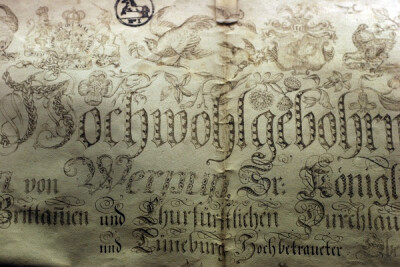 Hochwohlgebohrn
von Werpup Sr: Königl
Brittañien und Churfürstlichen Durchlau
und Lüneburg Hochbetraueter